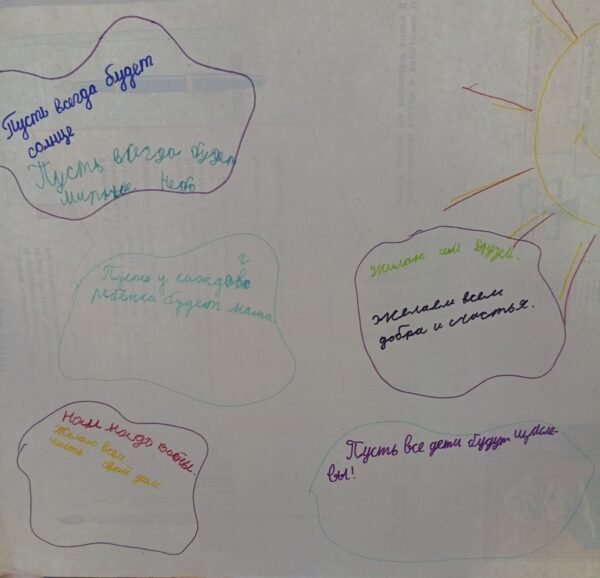 Пусть всегда будет
солнце
Пусть всегда будет
мирное Небо
г
Пусть у каждово
ребёнка будет мама.
Желаю всем друзей.
Желаем всем
добра и счастья.
Нам надо войны.
Желаю всем
иметь свой дом.
Пусть все дети будут щасле-
вы!